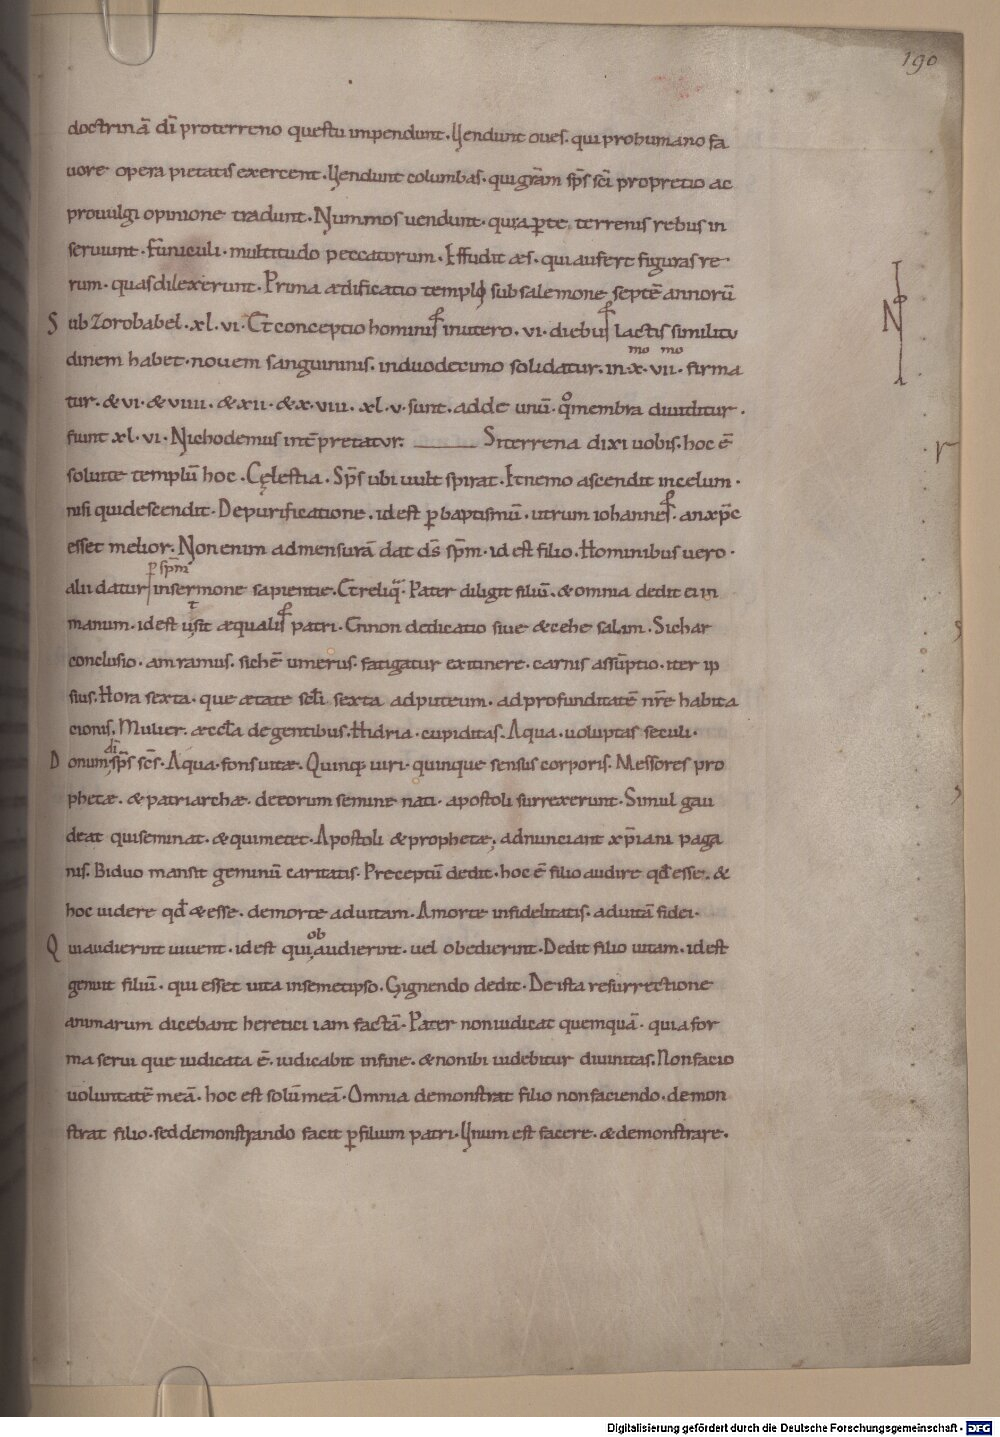 190
doctrinā dī proterreno questu inpendunt. Uendunt oues. qui prohumano fa
uore opera pietatis exercent. Uendunt columbas. qui grām sp̄s sc̄i propretio ac
prouulgi opinione tradunt. Nummos uendunt. qui aꝑte terrenis rebus in
seruiunt. funiculi. multitudo peccatorum. Effudit æs. qui aufert figuras re
rum. quas dilexerunt. Prima ædificatio templi sub salemone septē annorū
Sub Zorobabel. xl. vi. Et conceptio hominis inutero. vi. diebus lactis similitu
dinem habet. nouem sanguininis. induodecimo solidatur. in x.mo vii.mo firma
tur. & vi. & viiii. & xii. & x. viii. xl. v. sunt. adde unū. qo membra diuiditur.
fiunt xl. vi. Nichodemus int̄pretatur. Siterrena dixi uobis. hoc ē
soluite templū hoc. Cęlestia. Sp̄s ubi uult spirat. Et nemo ascendit incelum.
nisi quidescendit. Depurificatione. id est ꝑ baptismū. utrum iohannes. an xp̄c
esset melior. Non enim admensurā dat ds̄ sp̄m. id est filio. Hominibus uero.
ꝑ sp̄m
alii datur insermone sapientie. Et reliq. Pater diligit filiū. & omnia dedit ei in
manum. id est ut sit æqualis patri. Ennon dedicatio siue & cehe salim. Sichar
conclusio. am ramus. sichē umerus. fatigatur exitinere. carnis assūptio. iter ip
sius. Hora sexta. que ætate sc̄li sexta adputeum. adprofunditatē nr̄e habita
cionis. Mulier. æccl̄a degentibus. Hidria. cupiditas. Aqua. uoluptas seculi.
dī
Donum sp̄s sc̄s. Aqua. fons uitæ. Quinq; uiri. quinque sensus corporis. Messores pro
phetæ. & patriarchæ. decorum semine nati. apostoli surrexerunt. Simul gau
deat quiseminat. & quimetet. Apostoli & prophetæ, adnunciant xp̄iani paga
nis. Biduo mansit geminū caritatis. Preceptū dedit. hoc ē filio audire qd̄ esse. &
hoc uidere qd̄ & esse. demorte aduitam. Amorte infidelitatis. aduitā fidei.
ob
Quiaudierint uiuent. id est qui audierint. uel obedierint. Dedit filio uitam. id est
genuit filiū. qui esset uita insemetipso. Gignendo dedit. De ista resurrectione
animarum dicebant heretici iam factā. Pater non iudicat quemquā. quia for
ma serui que iudicata ē. iudicabit infine. & nonibi uidebitur diuinitas. Nonfacio
uoluntatē meā. hoc est solū meā. Omnia demonstrat filio nonfaciendo. demon
strat filio. sed demonstrando facit ꝑ filium patri. Unum est facere. & demonstrare.
Digitalisierung gefördert durch die Deutsche Forschungsgemeinschaft - DFG